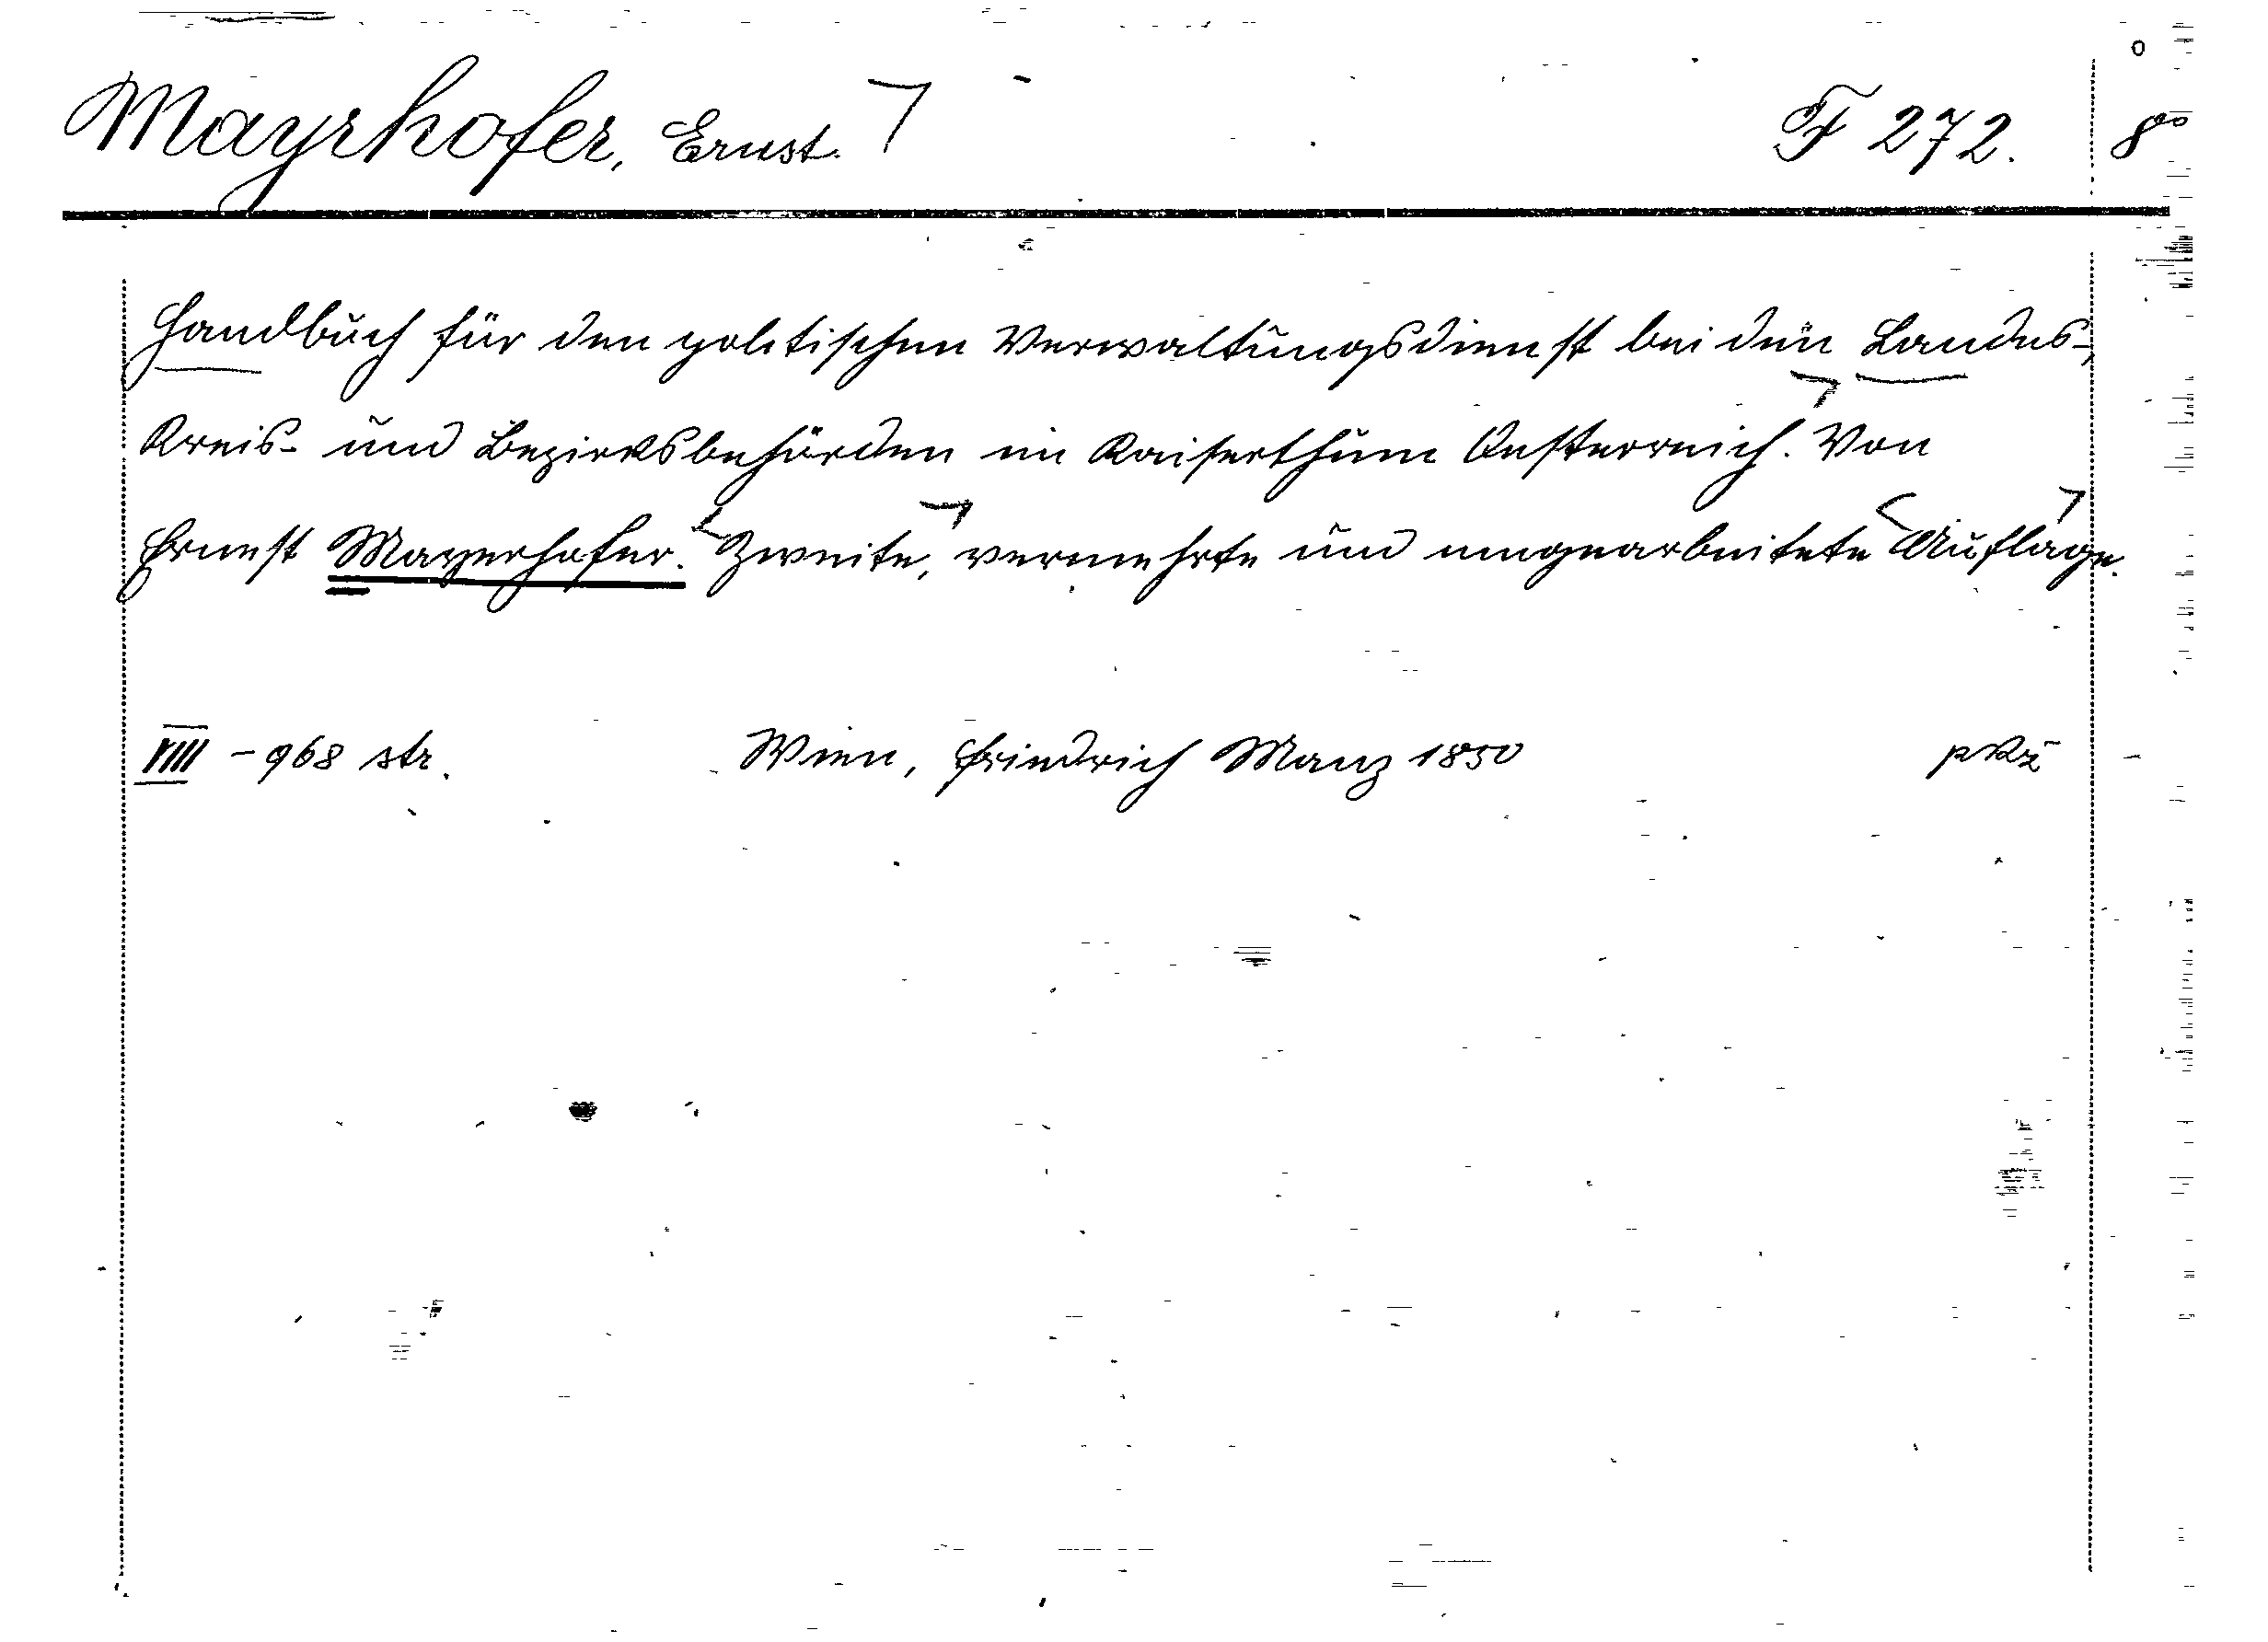 Mayrhofer, Ernst. F 272. 8°
Handbuch für den politischen Verwaltungsdienst bei den Landes-,
Kreis- und Bezirksbehörden im Kaiserthum Oesterreich. Von
Ernest Mayerhofer. Zweite, vermehrte und umgearbeitete Auflage.
VIII - 968 str. Wien, Friedrich Manz 1850